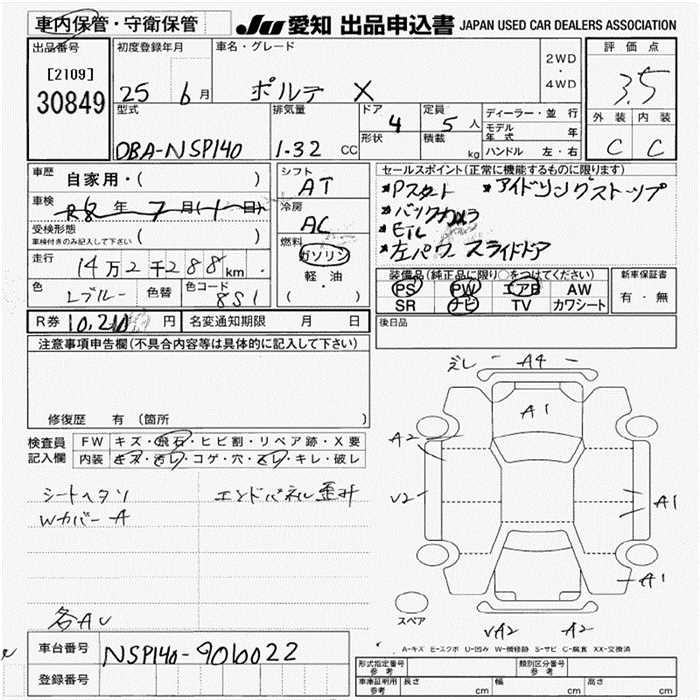 車内保管・守衛保管
JU 愛知 出品申込書 JAPAN USED CAR DEALERS ASSOCIATION
出品番号
[2109]
30849
初度登録年月
25 6月
車名・グレード
ポルテ X
2WD
・
4WD
評価点
3.5
外装 内装
C C
型式
DBA-NSP140
排気量
1.32 CC
ドア
4
形状
定員
5 人
積載
kg
ディーラー・並行
モデル年式 年
ハンドル 左・右
車歴
自家用・( )
車検
R8年7月(1日)
受検形態
車検付きのみ記入して下さい ( )
走行
14万2千288km
色
Lブルー
色替
色コード
8S1
シフト
AT
冷房
AC
燃料
ガソリン
軽・油
( ・ )
セールスポイント(正常に機能するものに限ります)
*Pスタート *アイドリングストップ
*バックカメラ
*左パワ スライドドア
装備品(純正品に限り○をつけてください)
PS PW エアB AW
SR ナビ TV カワシート
新車保証書
有・無
R券 10,210円
名変通知期限 月 日
後日品
注意事項申告欄(不具合内容等は具体的に記入して下さい)
修復歴 有(箇所 )
検査員
記入欄
FW キズ・飛石・ヒビ割・リペア跡・X要
内装 キズ・汚レ・コゲ・穴・スレ・キレ・破レ
シートヘタリ
Wカバー A
エンドパネル歪み
各AU
ズレ A4
A1
A2
V2
A1
A1
スペア
VA2 A2
A-キズ E-エクボ U-凹み W-補修跡 S-サビ C-腐食 XX-交換済
車台番号
NSP140-9010022
登録番号
形式指定番号
参考
類別区分番号
参考
車庫証明用
参考
長さ cm 幅 cm 高さ cm